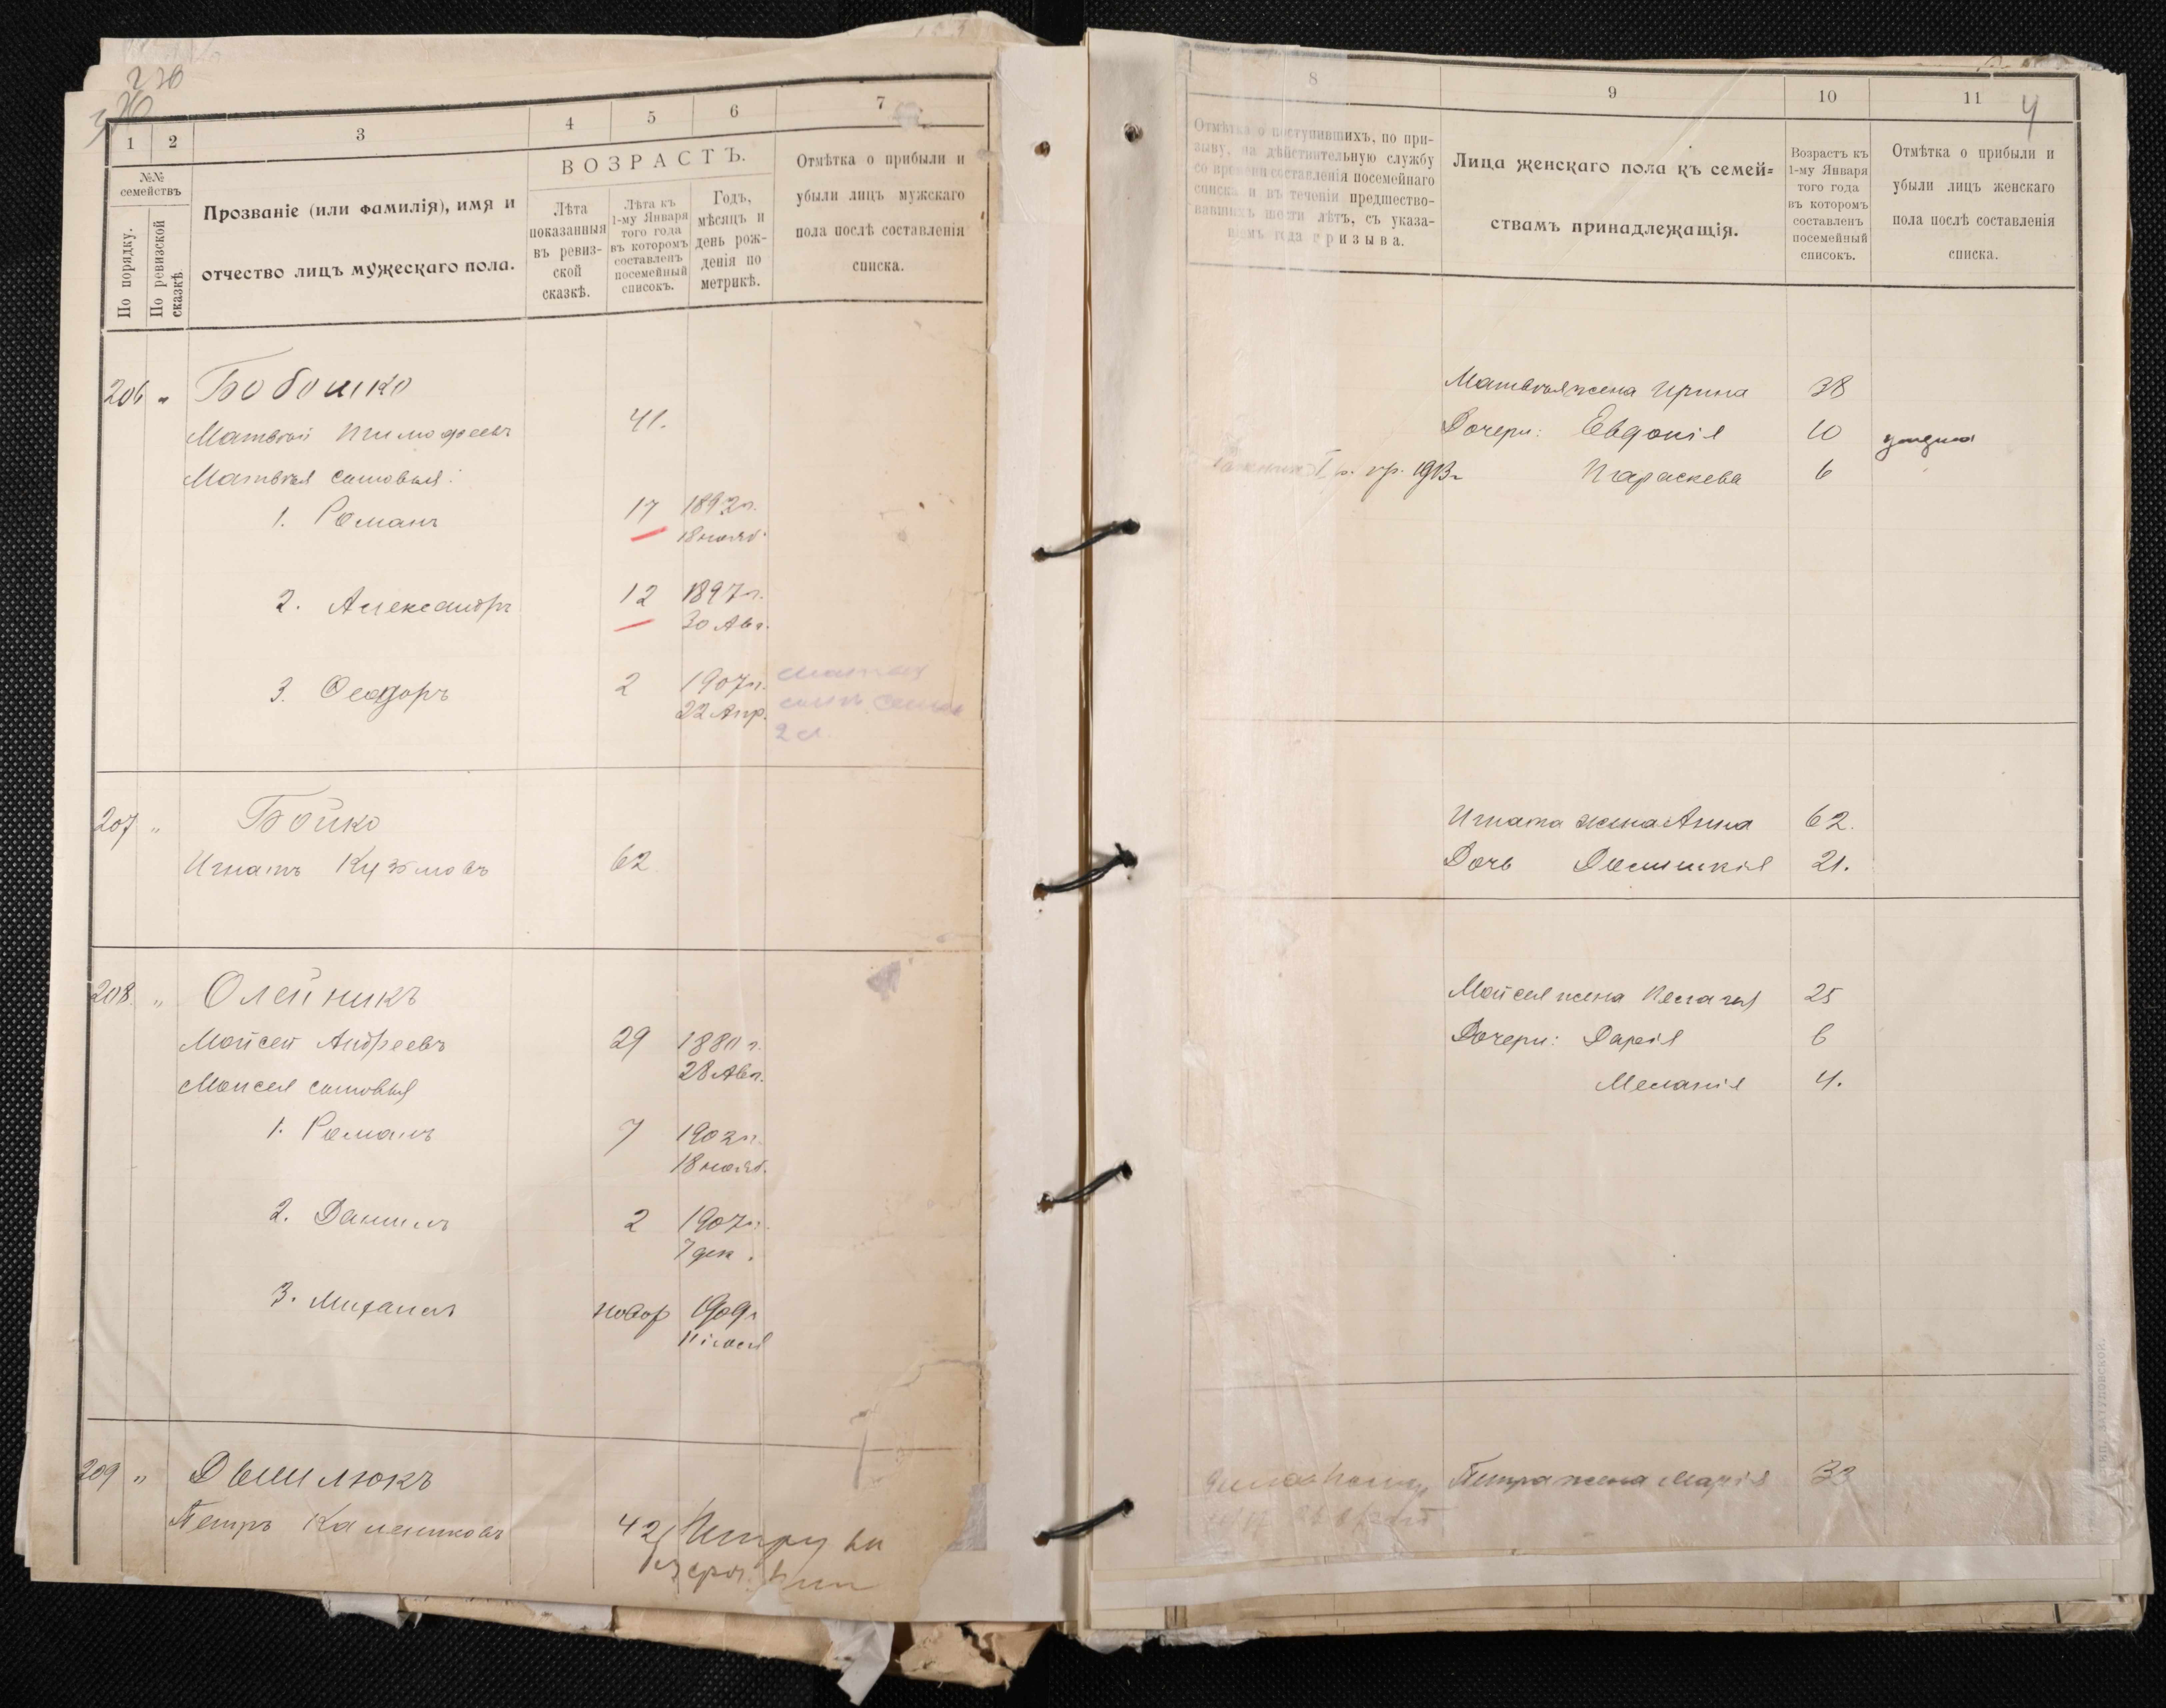 220
1
2
3
4
5
6
7
№№ семействъ
По порядку.
По ревизской сказкѣ
Прозваніе (или фамилія), имя и
отчество лицъ мужескаго пола.
ВОЗРАСТЪ.
Лѣта
показанныя
въ ревиз-
ской
сказкѣ.
Лѣта къ
1-му Января
того года
въ которомъ
составленъ
посемейный
списокъ.
Годъ,
мѣсяцъ и
день рож-
денія по
метрикѣ.
Отмѣтка о прибыли и
убыли лицъ мужскаго
пола послѣ составленія
списка.
206 „ Бобошко
Матвѣй Тимофеевъ 41.
Матвѣя сыновья:
1. Романъ 17 1892г.
18 нояб.
2. Александръ 12 1897г.
30 Авг.
3. Ѳеодоръ 2 1907г.
22 Апр.
2 сл.
207 „ Бойко
Игнатъ Кузьмовъ 62
208. „ Олейникъ
Мойсей Андреевъ 29 1880г.
28 Авг.
Мойсея сыновья
1. Романъ 7 1902г.
18 нояб.
2. Даниилъ 2 1907г.
7 дек.
3. Михаилъ новор 1909г
11 іюля
209 „ Дышлюкъ
Петръ Калениковъ 42
Петру
8
9
10
11
4
Отмѣтка о поступившихъ, по при-
зыву, на дѣйствительную службу
со времени составленія посемейнаго
списка и въ теченіи предшество-
вавшихъ шести лѣтъ, съ указа-
ніемъ года призыва.
Лица женскаго пола къ семей=
ствамъ принадлежащія.
Возрастъ къ
1-му Января
того года
въ которомъ
составленъ
посемейный
списокъ.
Отмѣтка о прибыли и
убыли лицъ женскаго
пола послѣ составленія
списка.
Матвѣя жена Ирина 38
Дочери: Евдокія 10
I р. пр. 1913г Параскева 6
Игната жена Анна 62.
Дочь Домникія 21.
Мойсея жена Пелагія 25
Дочери: Дарія 6
Меланія 4.
Петра жена Марія 33